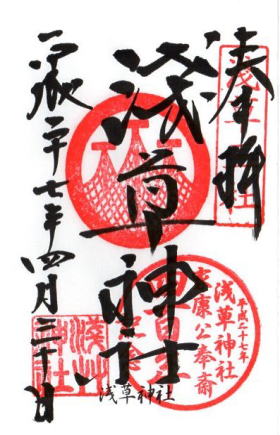 奉拝
浅草
浅草神社
平成二十七年四月三十日
平成二十七年
浅草神社
家康公奉斎
浅草神社
浅草神社